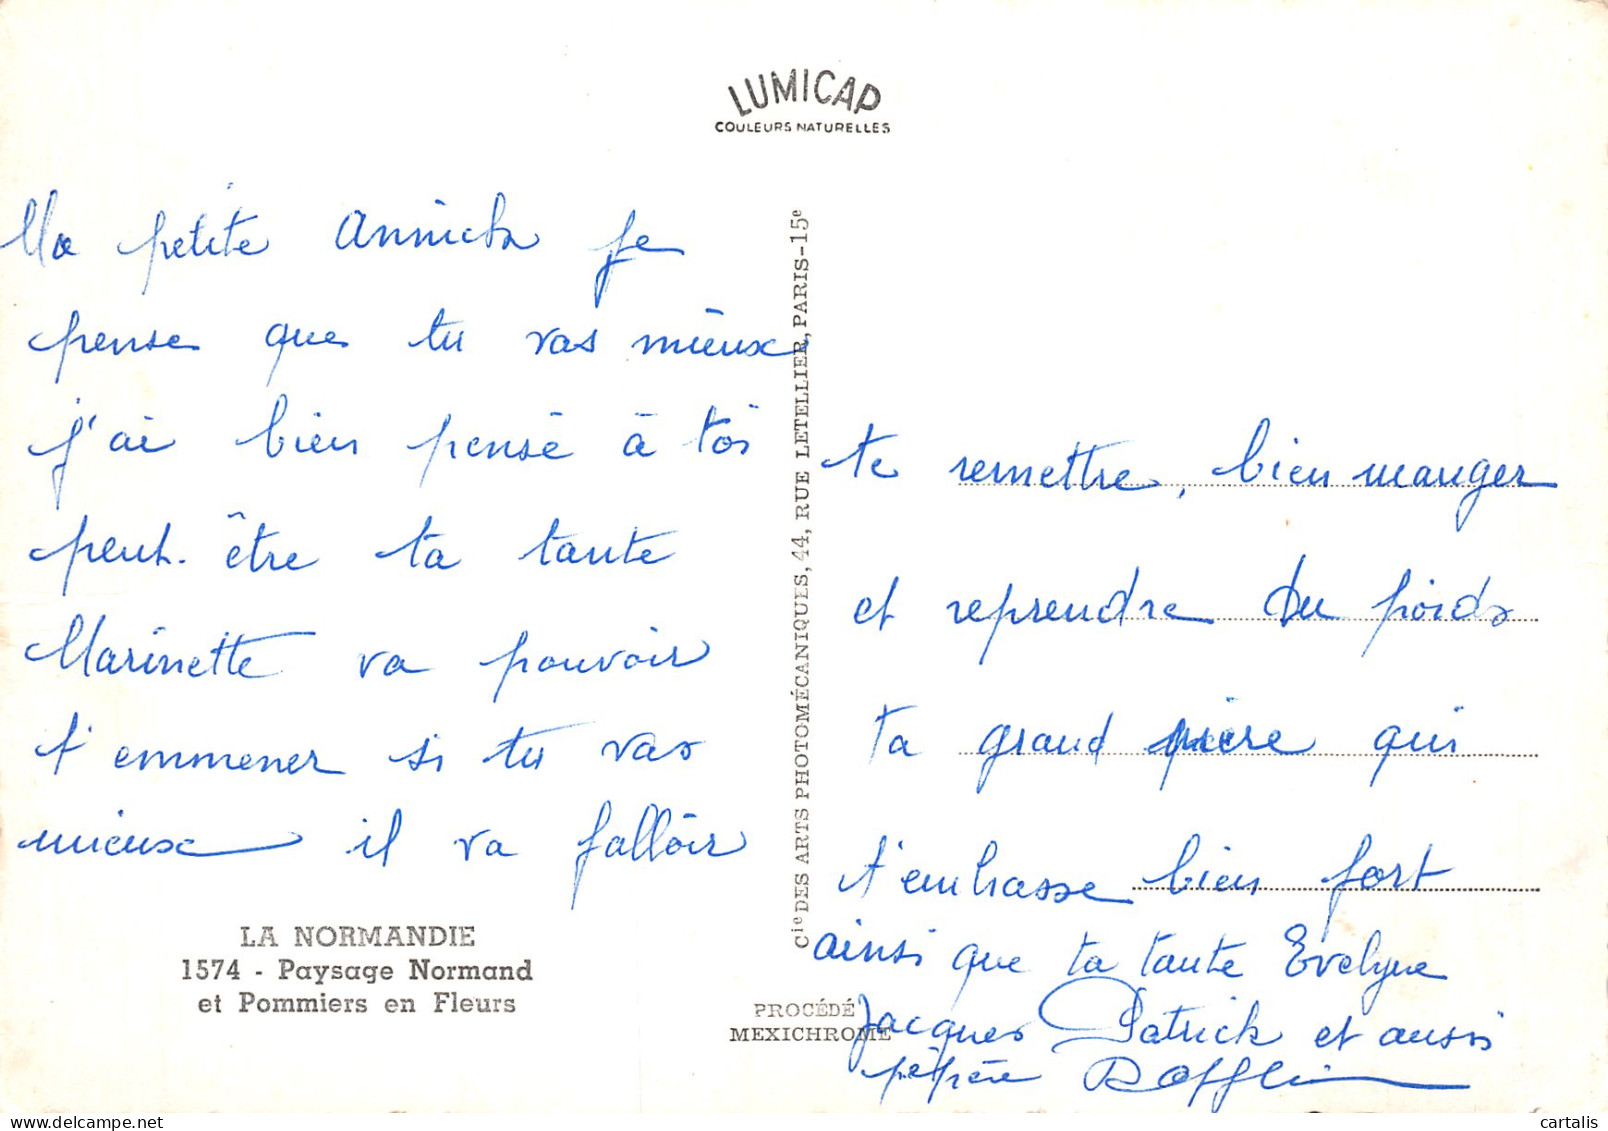 LUMICAP
COULEURS NATURELLES
Ma petite Annick je
pense que tu vas mieux,
j'ai bien pensé à toi
peut-être ta tante
Marinette va pouvoir
t'emmener si tu vas
mieux il va falloir
te remettre, bien manger
et reprendre du poids
ta grand mère qui
t'embrasse bien fort
ainsi que ta tante Evelyne
Jacques Patrick et aussi
pépère
Cie DES ARTS PHOTOMÉCANIQUES, 44, RUE LETELLIER, PARIS-15e
LA NORMANDIE
1574 - Paysage Normand
et Pommiers en Fleurs
PROCÉDÉ
MEXICHROME
© cartalis